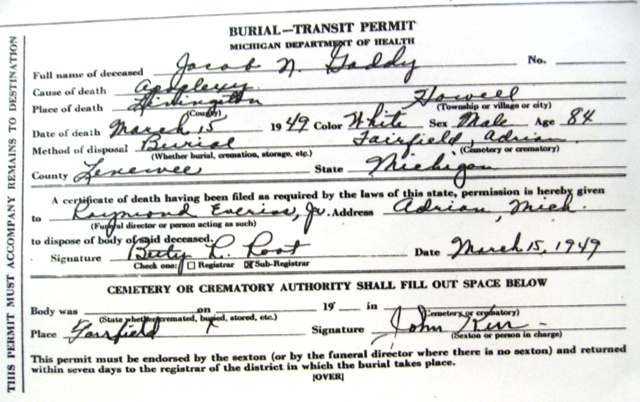 BURIAL—TRANSIT PERMIT
MICHIGAN DEPARTMENT OF HEALTH
Full name of deceased Jacob N. Gaddy No.
Cause of death Apoplexy
Place of death Livingston Howell
(County) (Township or village or city)
Date of death March 15 1949 Color White Sex Male Age 84
Method of disposal Burial Fairfield Adrian
(Whether burial, cremation, storage, etc.) (Cemetery or crematory)
County Lenewee State Michigan
A certificate of death having been filed as required by the laws of this state, permission is hereby given
to Raymond Everiss, Jr. Address Adrian, Mich.
(Funeral director or person acting as such)
to dispose of body of said deceased.
Signature Betty L. Root Date March 15, 1949
Check one: ☐ Registrar ☒ Sub-Registrar
CEMETERY OR CREMATORY AUTHORITY SHALL FILL OUT SPACE BELOW
Body was on 19 in
(State whether cremated, buried, stored, etc.) (Cemetery or crematory)
Place Fairfield Signature John Kerr
(Sexton or person in charge)
This permit must be endorsed by the sexton (or by the funeral director where there is no sexton) and returned
within seven days to the registrar of the district in which the burial takes place.
[OVER]
THIS PERMIT MUST ACCOMPANY REMAINS TO DESTINATION